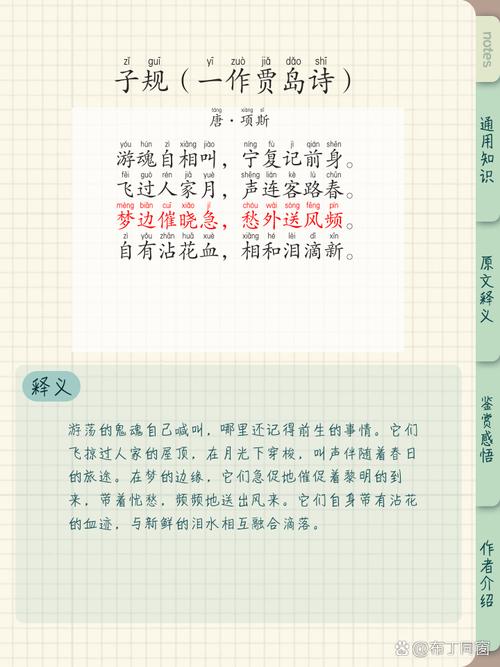 zǐ guī yī zuò jiǎ dǎo shī
子规（一作贾岛诗）
táng xiàng sī
唐·项斯
yóu hún zì xiāng jiào níng fù jì qián shēn
游魂自相叫，宁复记前身。
fēi guò rén jiā yuè shēng lián kè lù chūn
飞过人家月，声连客路春。
mèng biān cuī xiǎo jí chóu wài sòng fēng pín
梦边催晓急，愁外送风频。
zì yǒu zhān huā xuè xiāng hé lèi dī xīn
自有沾花血，相和泪滴新。
释义
游荡的鬼魂自己喊叫，哪里还记得前生的事情。它们
飞掠过人家的屋顶，在月光下穿梭，叫声伴随着春日
的旅途。在梦的边缘，它们急促地催促着黎明的到
来，带着忧愁，频频地送出风来。它们自身带有沾花
的血迹，与新鲜的泪水相互融合滴落。
notes
通用知识
原文释义
鉴赏感悟
作者介绍
布丁同窗